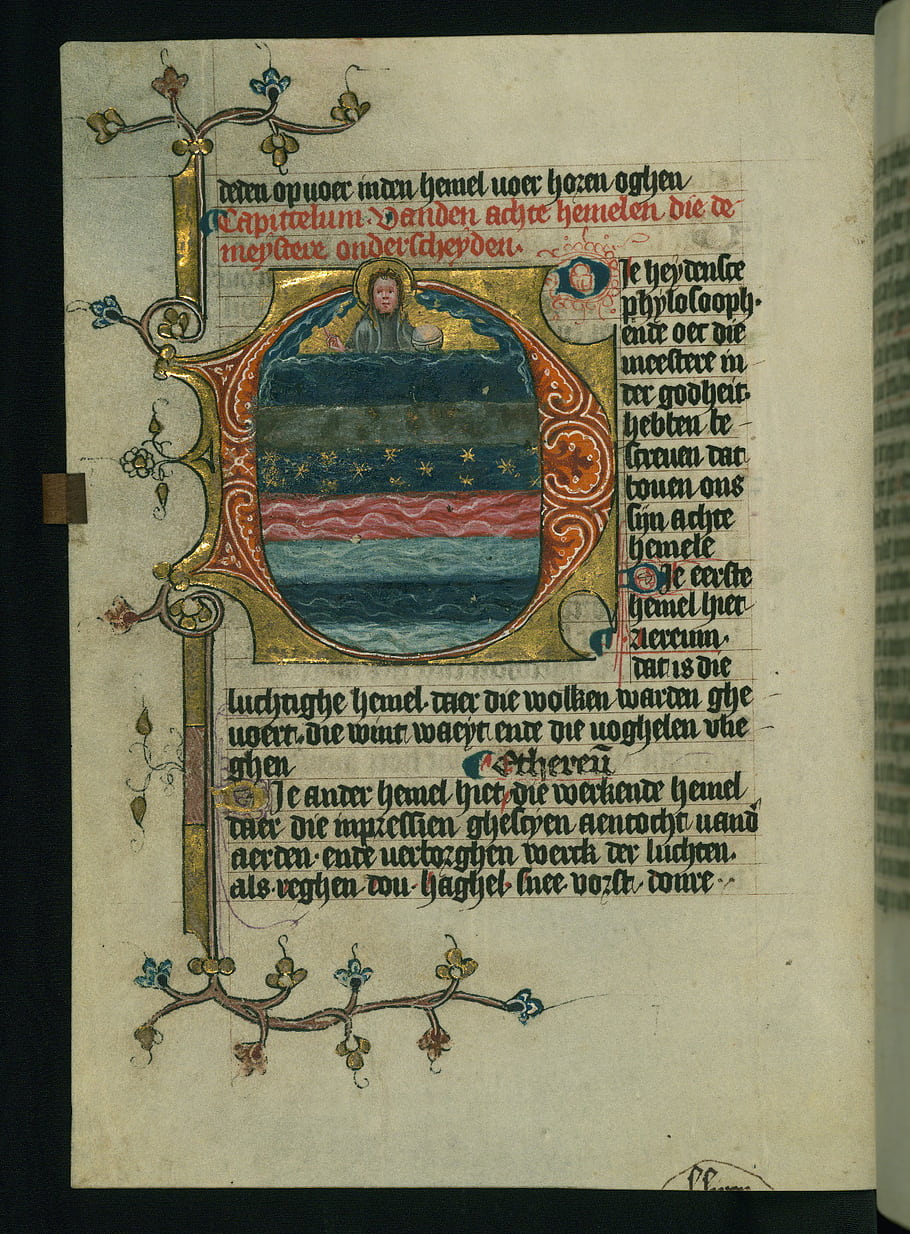 deden op voer in den hemel voer horen oghen
Capittelum. Vanden achte hemelen die de
meystere onderscheyden.
Die heydensce
phylosooph.
ende oec die
meestere in
der godheit.
hebben be
screuen dat
bouen ons
sijn achte
hemele
Die eerste
hemel hiet
aereum.
dat is die
luchtighe hemel. daer die wolken warden ghe
uoert. die wint waeyt ende die uoghelen vlie
ghen
Ethereū
Die ander hemel hiet, die werkende hemel
daer die inpressien ghescyen aentocht vand
aerden. ende uerborghen werck der luchten.
als reghen. dou. haghel. snee. vorst. donre